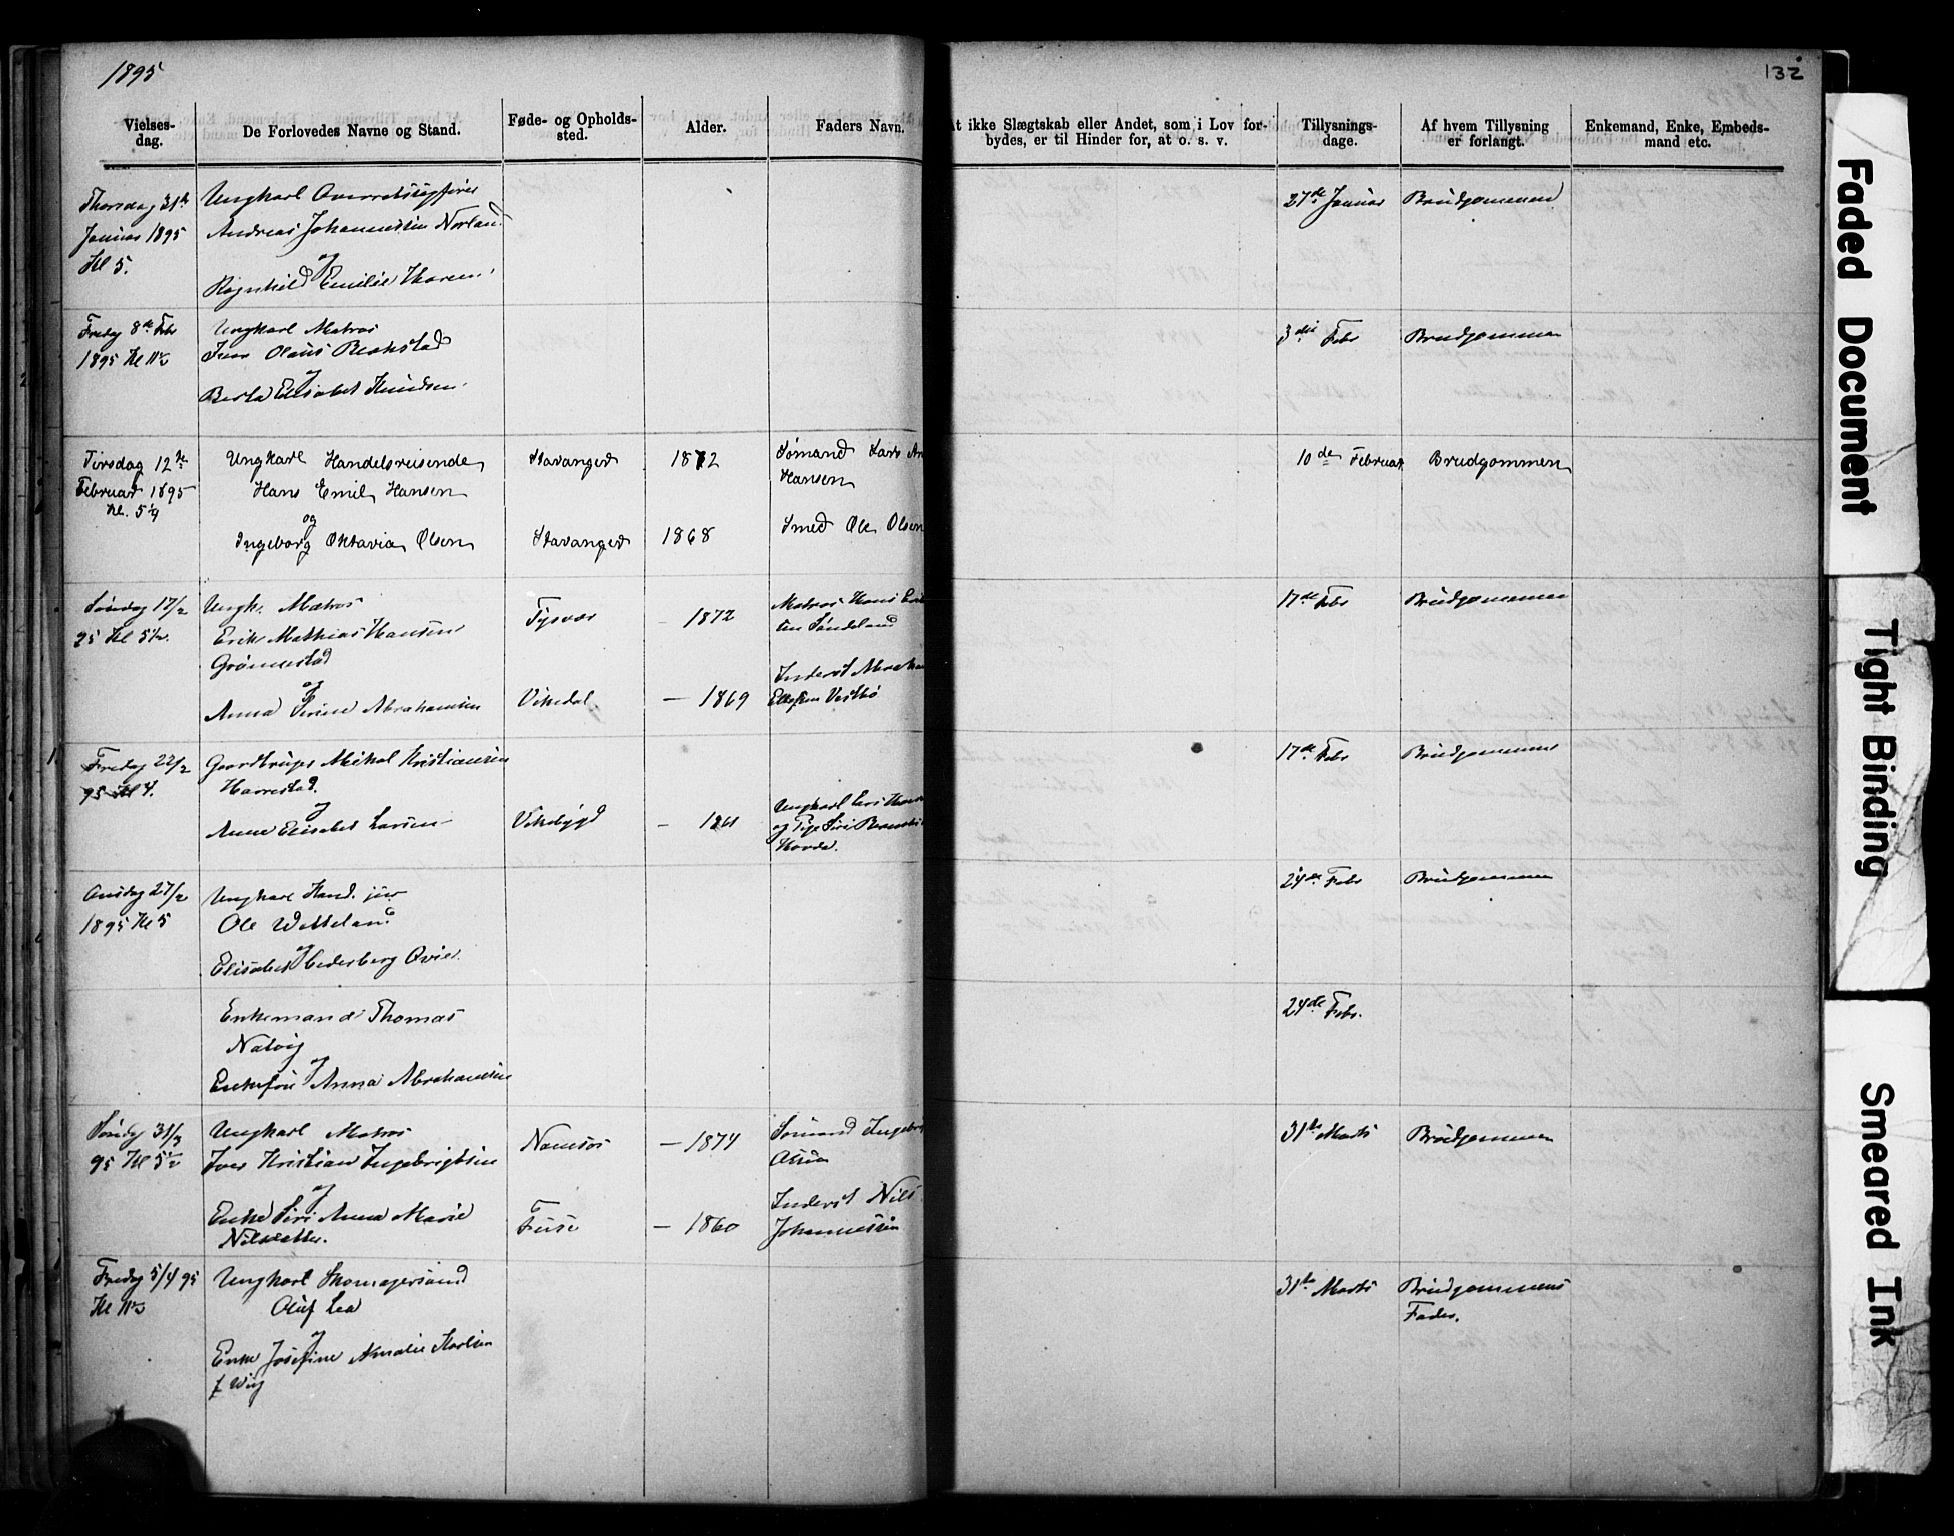 1895
132
Vielses-
dag.
De Forlovedes Navne og Stand.
Føde- og Opholds-
sted.
Alder.
Faders Navn.
At ikke Slægtskab eller Andet, som i Lov for-
bydes, er til Hinder for, at o. s. v.
Tillysnings-
dage.
Af hvem Tillysning
er forlangt.
Enkemand, Enke, Embeds-
mand etc.
Thorsdag 31te
Januar 1895
Kl 5.
Ungkarl Overretssagfører
Andreas Johannessen Norland
og
Ragnhild Emilie
27de Januar
Brudgommen
Fredag 8de Feb
1895 Kl 11½
Ungkarl Matros
Iver Olaus
og
Berta Elisabet Knudsen
3die Febr
Brudgommen
Tirsdag 12te
Februar 1895
Kl. 5½
Ungkarl Handelsreisende
Hans Emil Hansen
og
Ingeborg Oktavia Olsen
Stavanger
Stavanger
1872
1868
Sømand Lars An
Hansen
Smed Ole Olsen
10de Februar
Brudgommen
Søndag 17/2
95 Kl 5½
Ungk. Matros
Erik Mathias Hansen
Grønnestad
og
Anna Serine Abrahamsen
Tysvær
Vikedal
1872
— 1869
Matros Hans
Inderst Abraham
Vestbø
17de Febr
Brudgommen
Fredag 22/2
95 Kl 4.
Gaardbruger Mikal Kristiansen
Harestad.
og
Anne Elisabet Larsen
Vikebygd
Ungkarl Lars
og Pige Siri
17de Febr
Brudgommen
Onsdag 27/2
1895 Kl 5
Ungkarl Kand. jur
Ole Wetteland
og
Elisabet Hederberg Qvie
24de Febr
Brudgommen
Enkemand Thomas
Natvig
og
Enkefru Anna Abrahamsen
24de Febr.
Søndag 31/3
95 Kl 5½
Ungkarl Matros
Iver Kristian Ingebrigtsen
og
Enke Siri Anna Marie
Nilsdatter.
Namsos
Fuse
— 1874
— 1860
Sømand Ingebri
Inderst Nils
Johannessen
31te Marts
Brudgommen
Fredag 5/4 95
Kl 11½
Ungkarl Skomagersvend
Oluf Lea
og
Enke Josefine Amalie Karlsen
f. Wiig
31te Marts
Brudgommens
Fader.
Faded Document
Tight Binding
Smeared Ink